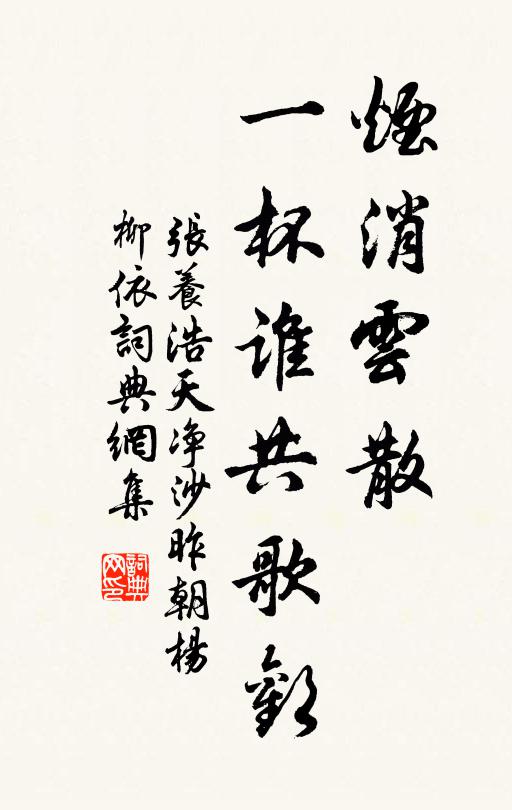 煙消雲散
一杯誰共歌歡
張養浩天净沙昨朝楊
柳依詞典網集
詞典
网印